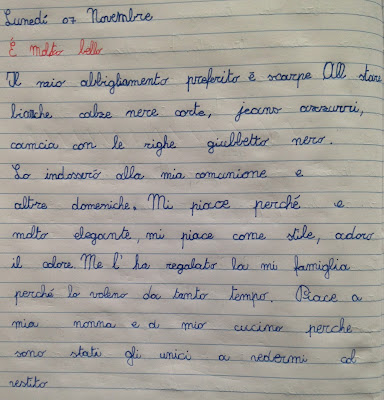 Lunedí 07 Novembre
É molto bello
Il mio abbigliamento preferito è scarpe All stars
bianche calze nere corte, jeans azzurri,
camcia con le righe giubbetto nero.
Lo indosserò alla mia comunione e
altre domeniche. Mi piace perché e
molto elegante, mi piace come stile, adoro
il colore. Me l' ha regalato la mi famiglia
perché lo volevo da tanto tempo. Piace a
mia nonna e a mio cucino perche
sono stati gli unici a vedermi col
vestito